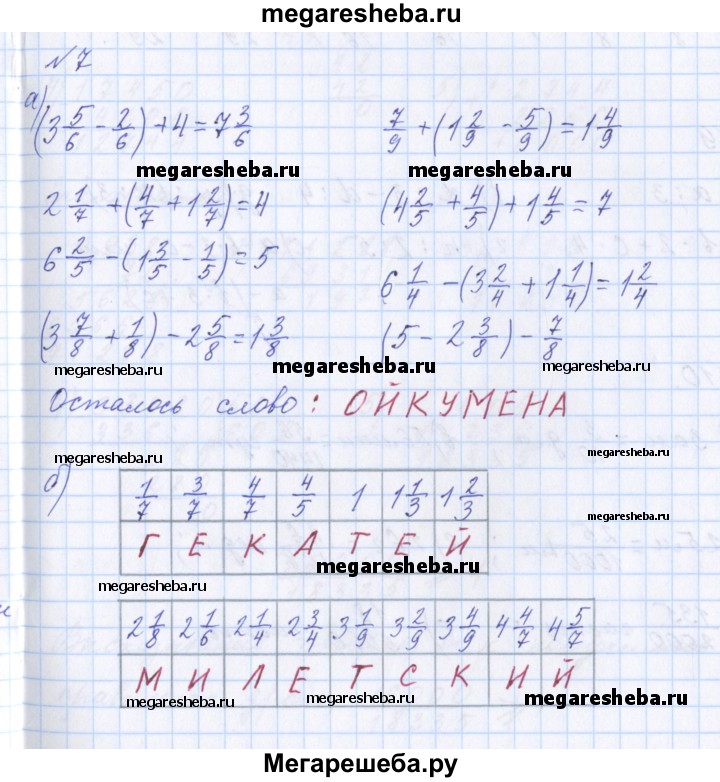 megaresheba.ru
№7
а) (3 5/6 - 2/6) + 4 = 7 3/6
7/9 + (1 2/9 - 5/9) = 1 4/9
megaresheba.ru
megaresheba.ru
2 1/7 + (4/7 + 1 2/7) = 4
(4 2/5 + 4/5) + 1 4/5 = 7
6 2/5 - (1 3/5 - 1/5) = 5
6 1/4 - (3 2/4 + 1 1/4) = 1 2/4
(3 7/8 + 1/8) - 2 5/8 = 1 3/8
(5 - 2 3/8) - 7/8
megaresheba.ru
megaresheba.ru
megaresheba.ru
Осталось слово: ОЙКУМЕНА
megaresheba.ru
megaresheba.ru
б)
1/7 3/7 4/7 4/5 1 1 1/3 1 2/3
Г Е К А Т Е Й
megaresheba.ru
megaresheba.ru
2 1/8 2 1/6 2 1/4 2 3/4 3 1/9 3 2/9 3 4/9 4 4/7 4 5/7
М И Л Е Т С К И Й
megaresheba.ru
megaresheba.ru
megaresheba.ru
Мегарешеба.ру